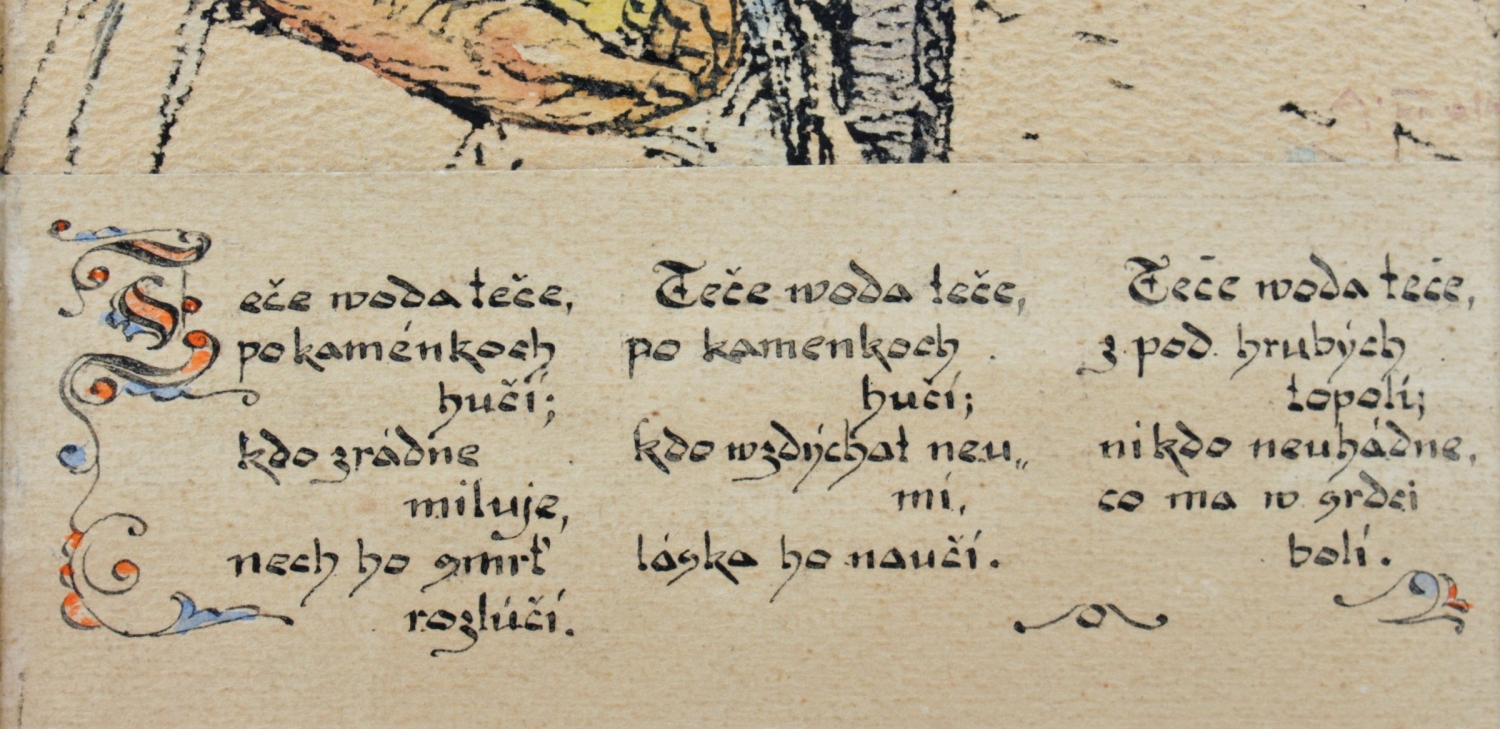 Teče woda teče,
po kaménkoch
hučí;
kdo zrádne
miluje,
nech ho smrť
rozlúčí.
Teče woda teče,
po kamenkoch
hučí;
kdo wzdýchat neu„
mí,
láska ho naučí.
Teče woda teče,
z pod hrubých
topolí;
nikdo neuhádne,
co ma w srdci
bolí.